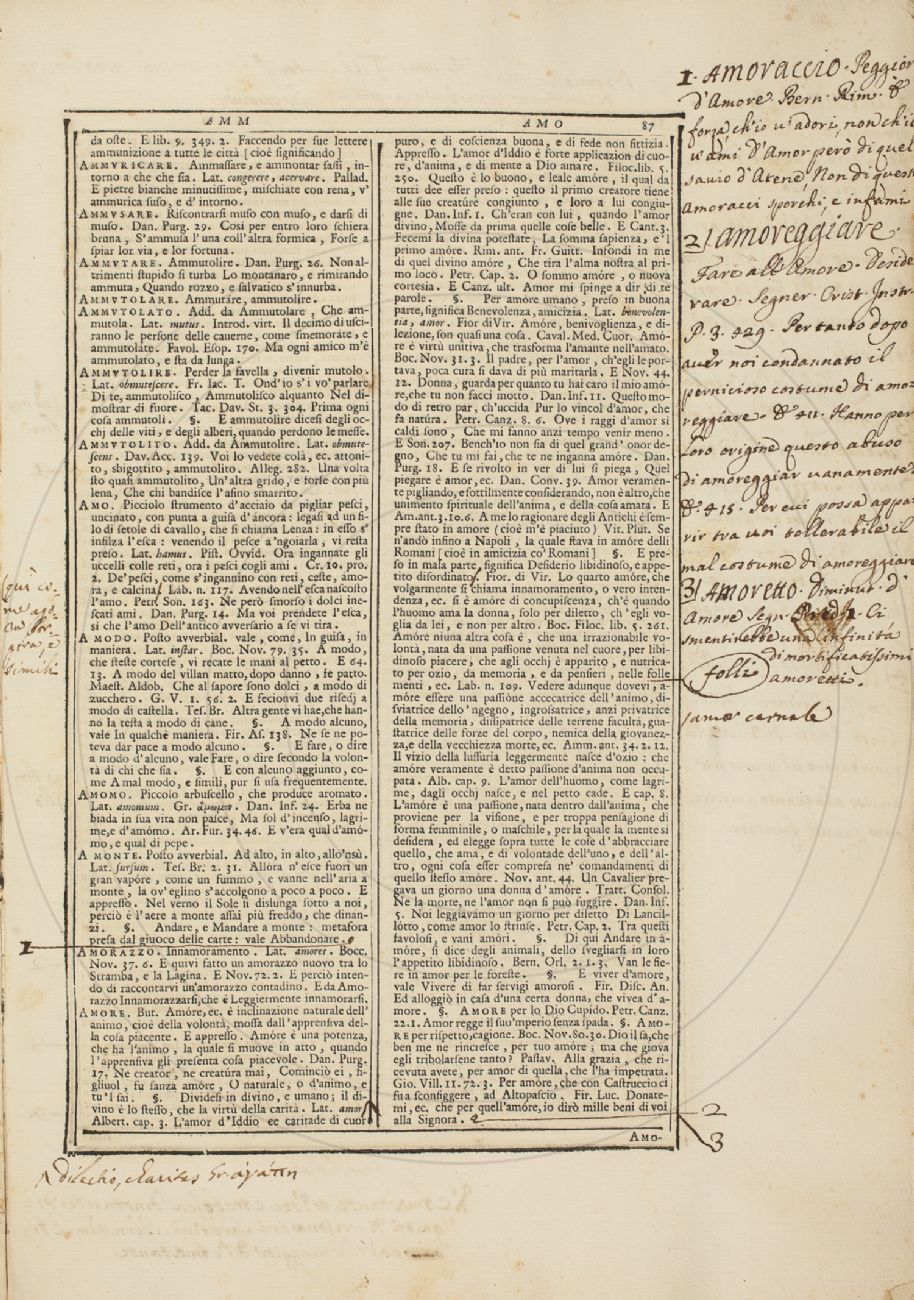 AMM
AMO 87
da oste. E lib. 9. 349. 2. Faccendo per sue lettere
ammunizione a tutte le città [cioè significando]
AMMVRICARE. Ammassare, e ammontar sassi, in-
torno a che che sia. Lat. congerere, acervare. Pallad.
E pietre bianche minutissime, mischiate con rena, v'
ammurica suso, e d' intorno.
AMMVSARE. Riscontrarsi muso con muso, e darsi di
muso. Dan. Purg. 29. Così per entro loro schiera
bruna, S'ammusa l' una coll'altra formica, Forse a
spiar lor via, e lor fortuna.
AMMVTARE. Ammutolire. Dan. Purg. 26. Non al-
trimenti stupido si turba Lo montanaro, e rimirando
ammuta, Quando rozzo, e salvatico s'innurba.
AMMVTOLARE. Ammutáre, ammutolire.
AMMVTOLATO. Add. da Ammutolare, Che am-
mutola. Lat. mutus. Introd. virt. Il decimo di usci-
ranno le persone delle cauerne, come smemoráte, e
ammutoláte. Favol. Esop. 170. Ma ogni amico m'è
ammutolato, e sta da lunga.
AMMVTOLIRE. Perder la favella, divenir mutolo.
Lat. obmutescere. Fr. Iac. T. Ond'io s'i vo' parlare
Di te, ammutolisco, Ammutolisco alquanto Nel di-
mostrar di fuore. Tac. Dav. St. 3. 304. Prima ogni
cosa ammutoli. §. E ammutolire dicesi degli oc-
chj delle viti, e degli alberi, quando perdono le messe.
AMMVTOLITO. Add. da Ammutolire. Lat. obmute-
scens. Dav. Acc. 139. Voi lo vedete colà, ec. attoni-
to, sbigottito, ammutolito. Alleg. 282. Una volta
sto quasi ammutolito, Un'altra grido, e forse con più
lena, Che chi bandisce l'asino smarrito.
AMO. Picciolo strumento d'acciaio da pigliar pesci,
uncinato, con punta a guisa d'áncora: legasi ad un fi-
lo di setole di cavallo, che si chiama Lenza: in esso s'
infilza l'esca: venendo il pesce a'ngoiarla, vi resta
preso. Lat. hamus. Pist. Ovvid. Ora ingannate gli
uccelli colle reti, ora i pesci cogli ami. Cr. 10. pro.
2. De'pesci, come s'ingannino con reti, ceste, ámo-
ra, e calcina. Lab. n. 117. Avendo nell'esca nascosto
l'amo. Petr. Son. 163. Ne però smorso i dolci ine-
scati ami. Dan. Purg. 14. Ma voi prendete l'esca
sì che l'amo Dell'antico avversario a se vi tira.
A MODO. Posto avverbial. vale, come, In guisa, in
maniera. Lat. instar. Boc. Nov. 79. 35. A modo,
che steste cortese, vi recate le mani al petto. E 64.
13. A modo del villan matto, dopo danno, fe patto.
Maest. Aldob. Che al sapore sono dolci, a modo di
zucchero. G. V. 1. 56. 2. E fecionvi due risedj a
modo di castella. Tes. Br. Altra gente vi hae, che han-
no la testa a modo di cane. §. A modo alcuno,
vale In qualchè maniera. Fir. As. 138. Ne se ne po-
teva dar pace a modo alcuno. §. E fare, o dire
a modo d'alcuno, vale Fare, o dire secondo la volon-
tà di chi che sia. §. E con alcuno aggiunto, co-
me A mal modo, e simili, pur si usa frequentemente.
AMOMO. Piccolo arbuscello, che produce aromato.
Lat. amomum. Gr. ἄμωμον. Dan. Inf. 24. Erba ne
biada in sua vita non pasce, Ma sol d'incenso, lagri-
me, e d'amómo. Ar. Fur. 34. 46. E v'era qual d'amó-
mo, e qual di pepe.
A MONTE. Posto avverbial. Ad alto, in alto, allo'nsù.
Lat. sursum. Tes. Br. 2. 31. Allóra n'esce fuori un
gran vapóre, come un fummo, e vanne nell'aria a
monte, la ov'eglino s'accolgono a poco a poco. E
appresso. Nel verno il Sole si dislunga sotto a noi,
perciò è l'aere a monte assai più freddo, che dinan-
zi. §. Andare, e Mandare a monte: metafora
presa dal giuoco delle carte: vale Abbandonare.
AMORAZZO. Innamoramento. Lat. amores. Bocc.
Nov. 37. 6. E quivi fatto un amorazzo nuovo tra lo
Stramba, e la Lagina. E Nov. 72. 2. E perciò inten-
do di raccontarvi un'amorazzo contadino. E da Amo-
razzo Innamorazzarsi, che è Leggiermente innamorarsi.
AMORE. But. Amóre, ec. è inclinazione naturale dell'
animo, cioè della volontà, mossa dall'apprensiva del-
la cosa piacente. E appresso. Amóre è una potenza,
che ha l'animo, la quale si muove in atto, quando
l'apprensiva gli presenta cosa piacevole. Dan. Purg.
17. Ne creator, ne creatúra mai, Cominciò ei, fi-
gliuol, fu sanza amóre, O naturale, o d'animo, e
tu'l sai. §. Dividesi in divino, e umano; il di-
vino è lo stesso, che la virtù della carità. Lat. amor
Albert. cap. 3. L'amor d'Iddio ee caritade di cuor
puro, e di coscienza buona, e di fede non fittizia.
Appresso. L'amor d'Iddio è forte applicazion di cuo-
re, d'anima, e di mente a Dio amare. Filoc. lib. 5.
250. Questo è lo buono, e leale amóre, il qual da
tutti dee esser preso: questo il primo creatore tiene
alle sue creatúre congiunto, e loro a lui congiu-
gne. Dan. Inf. 1. Ch'eran con lui, quando l'amor
divino, Mosse da prima quelle cose belle. E Cant. 3.
Fecemi la divina potestate, La somma sapienza, e'l
primo amóre. Rim. ant. Fr. Guitt. Infondi in me
di quel divino amóre, Che tira l'alma nostra al pri-
mo loco. Petr. Cap. 2. O sommo amóre, o nuova
cortesia. E Canz. ult. Amor mi spinge a dir di te
parole. §. Per amóre umano, preso in buona
parte, significa Benevolenza, amicizia. Lat. benevolen-
tia, amor. Fior di Vir. Amóre, benivoglienza, e di-
lezione, son quasi una cosa. Caval. Med. Cuor. Amó-
re è virtù unitiva, che trasforma l'amante nell'amato.
Boc. Nov. 31. 3. Il padre, per l'amor, ch'egli le por-
tava, poca cura si dava di più maritarla. E Nov. 44.
12. Donna, guarda per quanto tu hai caro il mio amó-
re, che tu non facci motto. Dan. Inf. 11. Questo mo-
do di retro par, ch'uccida Pur lo vincol d'amor, che
fa natúra. Petr. Canz. 8. 6. Ove i raggi d'amor sì
caldi sono, Che mi fanno anzi tempo venir meno.
E Son. 207. Bench'io non sia di quel grand'onor de-
gno, Che tu mi fai, che te ne inganna amóre. Dan.
Purg. 18. E se rivolto in ver di lui si piega, Quel
piegare è amor, ec. Dan. Conv. 39. Amor veramen-
te pigliando, e sottilmente considerando, non è altro, che
unimento spirituale dell'anima, e della cosa amata. E
Am. ant. 3. 10. 6. A me lo ragionare degli Antichi è sem-
pre stato in amore (cioè m'è piaciuto) Vit. Plut. Se
n'andò infino a Napoli, la quale stava in amóre delli
Romani [cioè in amicizia co' Romani] §. E pre-
so in mala parte, significa Desiderio libidinoso, e appe-
tito disordinato. Fior. di Vir. Lo quarto amóre, che
volgarmente si chiama innamoramento, o vero inten-
denza, ec. si è amóre di concupiscenza, ch'è quando
l'huomo ama la donna, solo per diletto, ch'egli vo-
glia da lei, e non per altro. Boc. Filoc. lib. 5. 261.
Amóre niuna altra cosa è, che una irrazionabile vo-
lontà, nata da una passione venuta nel cuore, per libi-
dinoso piacere, che agli occhj è apparito, e nutrica-
to per ozio, da memoria, e da pensieri, nelle folle
menti, ec. Lab. n. 109. Vedere adunque dovevi, a-
móre essere una passióne accecatrice dell'animo, di-
sviatrice dello'ngegno, ingrossatrice, anzi privatrice
della memoria, dissipatrice delle terrene facultà, gua-
statrice delle forze del corpo, nemica della giovanez-
za, e della vecchiezza morte, ec. Amm. ant. 34. 2. 12.
Il vizio della lussuria leggermente nasce d'ozio: che
amóre veramente è detto passione d'anima non occu-
pata. Alb. cap. 9. L'amor dell'huomo, come lagri-
me, dagli occhj nasce, e nel petto cade. E cap. 8.
L'amóre è una passióne, nata dentro dall'anima, che
proviene per la visione, e per troppa pensagione di
forma femminile, o maschile, per la quale la mente si
desidera, ed elegge sopra tutte le cose d'abbracciare
quello, che ama, e di volontade dell'uno, e dell'al-
tro, ogni cosa esser compresa ne' comandamenti di
quello stesso amóre. Nov. ant. 44. Un Cavalier pre-
gava un giorno una donna d'amóre. Tratt. Consol.
Ne la morte, ne l'amor non si può fuggire. Dan. Inf.
5. Noi leggiavámo un giorno per diletto Di Lancil-
lotto, come amor lo strinse. Petr. Cap. 2. Tra questi
favolosi, e vani amóri. §. Di qui Andare in a-
móre, si dice degli animali, dello svegliarsi in loro
l'appetito libidinoso. Bern. Orl. 2. 1. 3. Van le fie-
re in amor per le foreste. §. E viver d'amore,
vale Vivere di far servigi amorosi. Fir. Disc. An.
Ed alloggiò in casa d'una certa donna, che vivea d'a-
more. §. AMORE per lo Dio Cupido. Petr. Canz.
22. 1. Amor regge il suo'mperio senza spada. §. AMO-
RE per rispetto, cagione. Boc. Nov. 80. 30. Dio il sa, che
ben me ne rincresce, per tuo amóre; ma che giova
egli tribolarsene tanto? Passav. Alla grazia, che ri-
cevuta avete, per amor di quella, che l'ha impetrata.
Gio. Vill. 11. 72. 3. Per amóre, che con Castruccio ci
fu a sconfiggere, ad Altopascio. Fir. Luc. Donate-
mi, ec. che per quell'amóre, io dirò mille beni di voi
alla Signora.
AMO-
1. Amoraccio. Peggior
d'Amore. Bern. Rim. &
forza ch'io v'adori, non ch'io
v'ami D'Amor però di quel
savio d'Atene, Non di questi
Amoracci sporchi, e infami
2 amoreggiare.
Fare all'Amore. Deside
rare. Segner. Crist. Instr.
P. 3. 429. Pertanto dopo
aver noi condannato il
pernicioso costume di amo=
reggiare. & 411. Hanno per
loro origine questo abuso
di amoreggiar vanamente.
&. 415. Per cui possa appa
rir tra voi tollerabile il
mal costume di amoreggiare
3 Amoretto. Diminut. d'
Amore Segn. Ci
smentirebbe una infinità
di mortificatissimi
folli amoretti.
amor carnale
qui co-
simili
1
2
3
dilectio, charitas